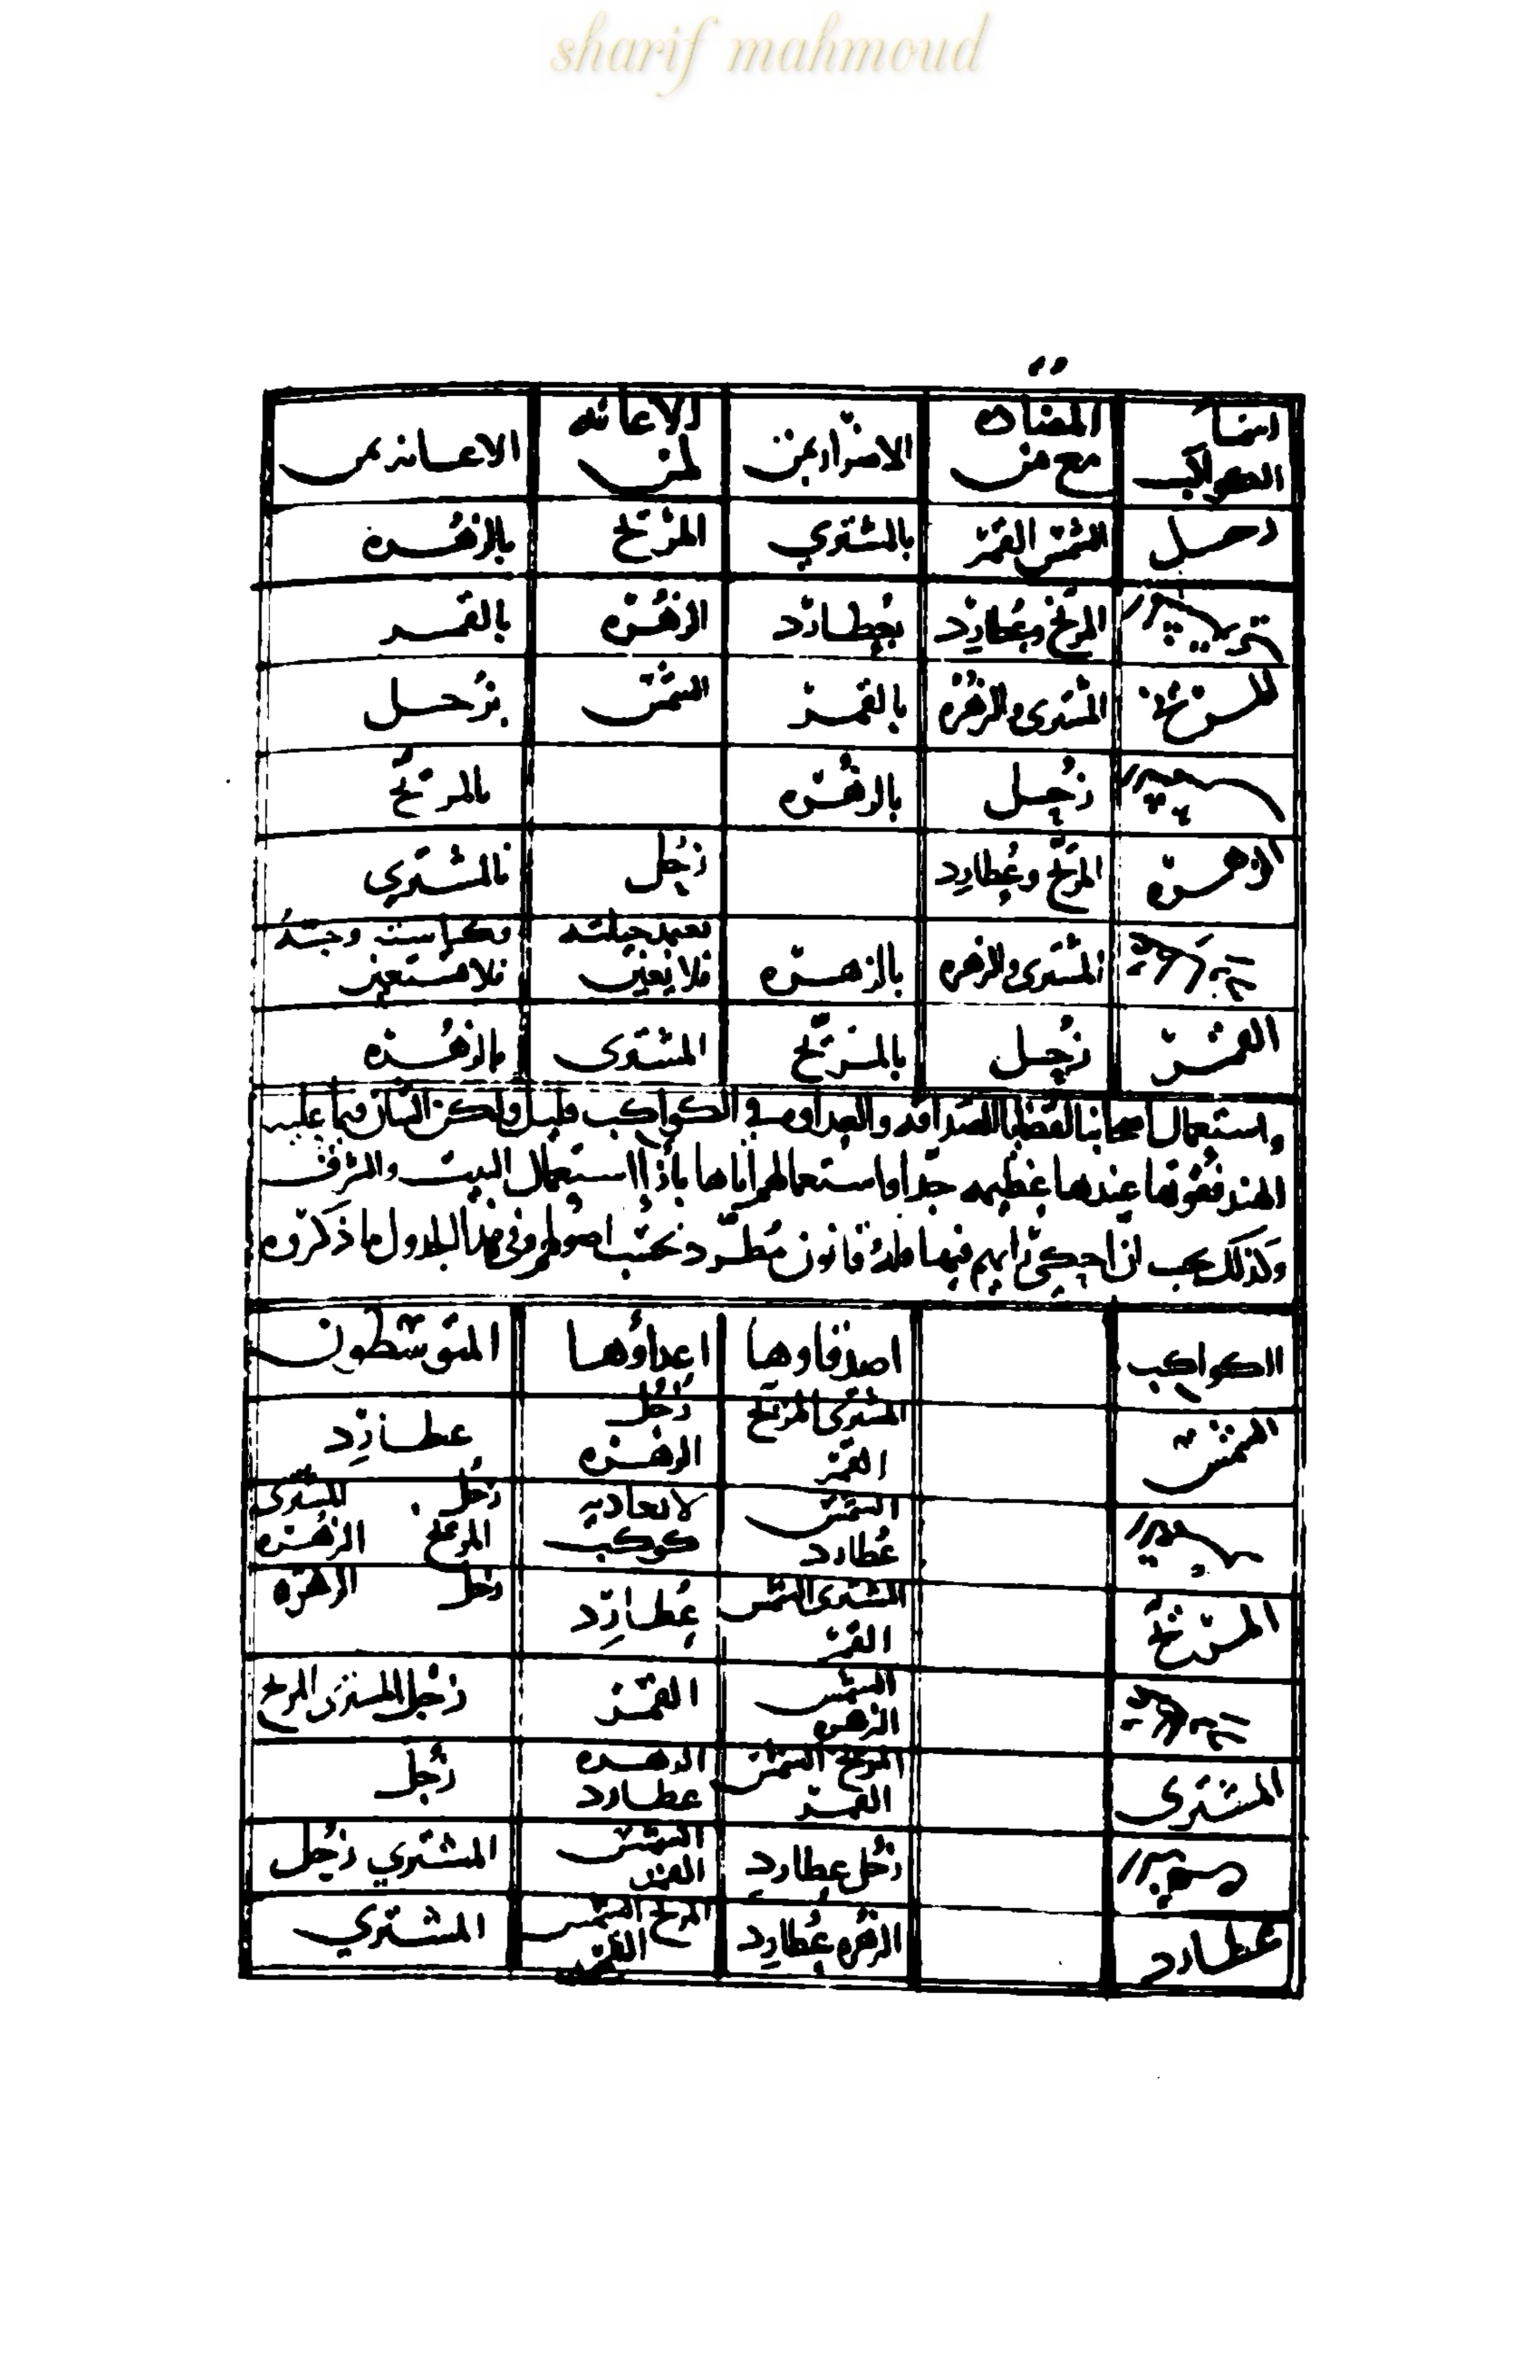 sharif mahmoud
اسما الكواكب المضادة مع من الاضرار بمن الاعانه لمن الاعانه بمن
زحل الشمس القمر بالمشتري المريخ بالزهره
المريخ وعطارد بعطارد الزهره بالقمر
المريخ المشترى والزهره بالقمر الشمس بزحل
زحل بالزهره بالمريخ
الزهره المريخ وعطارد زحل بالمشتري
المشترى والزهره بالزهره فلا يعين فلا يستعين
القمر زحل بالمريخ المشترى بالزهره
واستعمال اصحابنا لفظتا الصداقه والعداوه في الكواكب قليل ولكن الشان فيما عليه
الهند فقوتها عندها عظيمه جدا واستعمالهم اياها بازا استعمال البيت والشرف
وكذلك يجب ان احكي رايهم فيها وله قانون مطرد بحسب اصولهم وفي هذا الجدول ما ذكروه
الكواكب اصدقاوها اعداؤها المتوسطون
الشمس المشترى المريخ القمر زحل الزهره عطارد
الشمس عطارد لا يعاديه كوكب زحل المشترى المريخ الزهره
المريخ المشترى الشمس القمر عطارد زحل الزهره
الشمس الزهره القمر زحل المشترى المريخ
المشترى المريخ الشمس القمر الزهره عطارد زحل
زحل عطارد الشمس القمر المشتري زحل
عطارد الزهره عطارد المريخ الشمس القمر المشتري